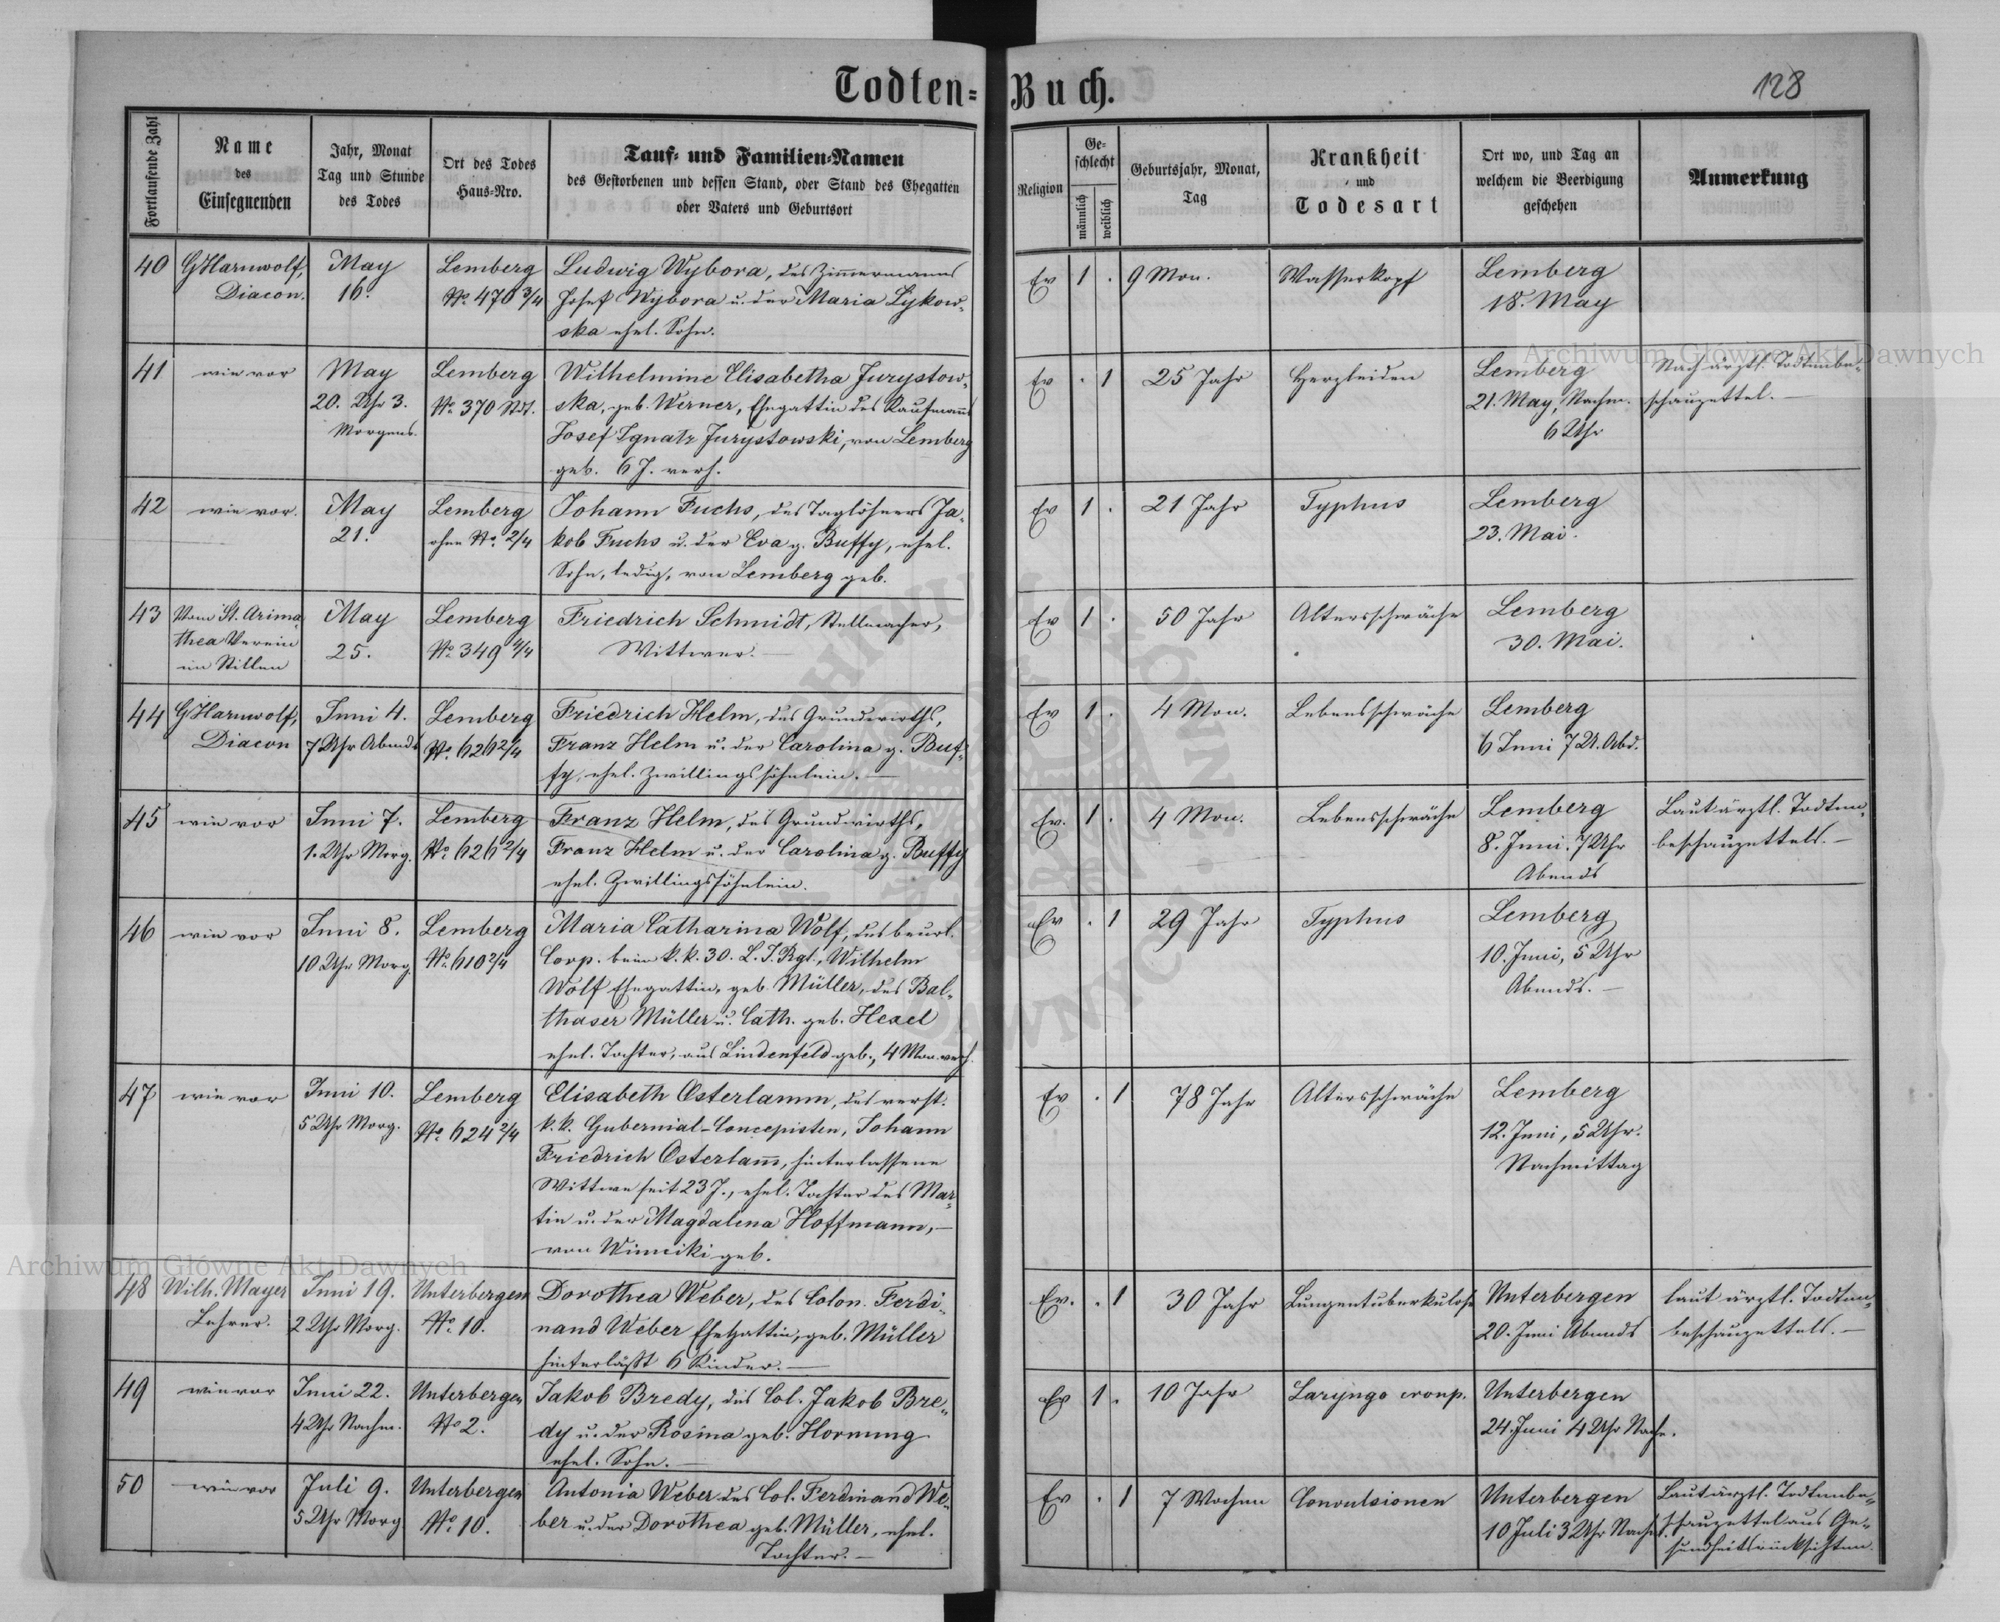 Todten-Buch.
128
Fortlaufende Zahl
Name
des
Einsegnenden
Jahr, Monat
Tag und Stunde
des Todes
Ort des Todes
Haus-Nro.
Tauf- und Familien-Namen
des Gestorbenen und dessen Stand, oder Stand des Ehegatten
oder Vaters und Geburtsort
Religion
Ge-
schlecht
männlich
weiblich
Geburtsjahr, Monat,
Tag
Krankheit
und
Todesart
Ort wo, und Tag an
welchem die Beerdigung
geschehen
Anmerkung
40
G Harnwolf,
Diacon.
May
16.
Lemberg
No. 470 3/4
Ludwig Wybora, des Zimmermanns
Josef Wybora u. der Maria Lykow-
ska ehel. Sohn.
Ev
1 .
9 Mon.
Wasserkopf
Lemberg
18. May
41
wie vor
May
20. Uhr 3.
Morgens.
Lemberg
No. 370 Stdt.
Wilhelmine Elisabetha Jurystow-
ska, geb. Werner, Ehegattin des Kaufmanns
Josef Ignatz Jurystowski, von Lemberg
geb. 6 J. verh.
Ev
. 1
25 Jahr
Herzleiden
Lemberg
21. May, Nachm.
6 Uhr
Nach ärztl. Todtenbe-
schauzettel. —
42
wie vor.
May
21.
Lemberg
ohne No. 2/4
Johann Fuchs, des Taglöhners Ja-
kob Fuchs u. der Eva g. Buffy, ehel.
Sohn, ledig, von Lemberg geb.
Ev
1 .
21 Jahr
Typhus
Lemberg
23. Mai.
43
Vom St. Arima-
thea Verein
im Stillen
May
25.
Lemberg
No. 349 4/4
Friedrich Schmidt, Stellmacher,
Wittwer. —
Ev
1 .
50 Jahr
Altersschwäche
Lemberg
30. Mai.
44
G Harnwolf,
Diacon
Juni 4.
7 Uhr Abends
Lemberg
No. 626 2/4
Friedrich Helm, des Grundwirths,
Franz Helm u. der Carolina g. Buf-
fy, ehel. Zwillingssöhnlein. —
Ev
1 .
4 Mon.
Lebensschwäche
Lemberg
6 Juni 7 U. Abd.
45
wie vor
Juni 7.
1. Uhr Morg.
Lemberg
No. 626 2/4
Franz Helm, des Grundwirths,
Franz Helm u. der Carolina g. Buffy
ehel. Zwillingssöhnlein.
Ev.
1 .
4 Mon.
Lebensschwäche
Lemberg
8. Juni. 7 Uhr
Abends
Laut ärztl. Todten-
beschauzettels. —
46
wie vor
Juni 8.
10 Uhr Morg.
Lemberg
No. 610 2/4
Maria Catharina Wolf, des beurl.
Corp. beim k. k. 30. L. I. Rgt., Wilhelm
Wolf Ehegattin, geb. Müller, des Bal-
thaser Müller u. Cath. geb. Hexel
ehel. Tochter, aus Lindenfeld geb., 4 Mon. verh.
Ev
. 1
29 Jahr
Typhus
Lemberg
10. Juni, 5 Uhr
Abends. —
47
wie vor
Juni 10.
5 Uhr Morg.
Lemberg
No. 624 2/4
Elisabeth Osterlamm, des verst.
k. k. Gubernial-Concepisten, Johann
Friedrich Osterlam̄, hinterlassene
Wittwe seit 23 J., ehel. Tochter des Mar-
tin u. der Magdalena Hoffmann, —
von Winniki geb.
Ev
. 1
78 Jahr
Altersschwäche
Lemberg
12. Juni, 5 Uhr.
Nachmittag
48
Wilh. Mayer
Lehrer.
Juni 19.
2 Uhr Morg.
Unterbergen
No. 10.
Dorothea Weber, des Colon. Ferdi-
nand Weber Ehegattin, geb. Müller
hinterläßt 6 Kinder. —
Ev.
. 1
30 Jahr
Lungentuberkulose
Unterbergen
20. Juni Abends
laut ärztl. Todten-
beschauzettels. —
49
wie vor
Juni 22.
4 Uhr Nachm.
Unterbergen
No 2.
Jakob Bredy, des Col. Jakob Bre-
dy u. der Rosina geb. Hornung
ehel. Sohn. —
Ev
1 .
10 Jahr
Laryngo croup.
Unterbergen
24. Juni 4 Uhr Nachm.
50
wie vor
Juli 9.
5 Uhr Morg
Unterbergen
No. 10.
Antonia Weber des Col. Ferdinand We-
ber u. der Dorothea geb. Müller, ehel.
Tochter. —
Ev
. 1
7 Wochen
Convulsionen
Unterbergen
10 Juli 3 Uhr Nachm.
Laut ärztl. Todtenbe-
schauzettel aus Ge-
sundheitsrücksichten.
Archiwum Główne Akt Dawnych
Archiwum Główne Akt Dawnych